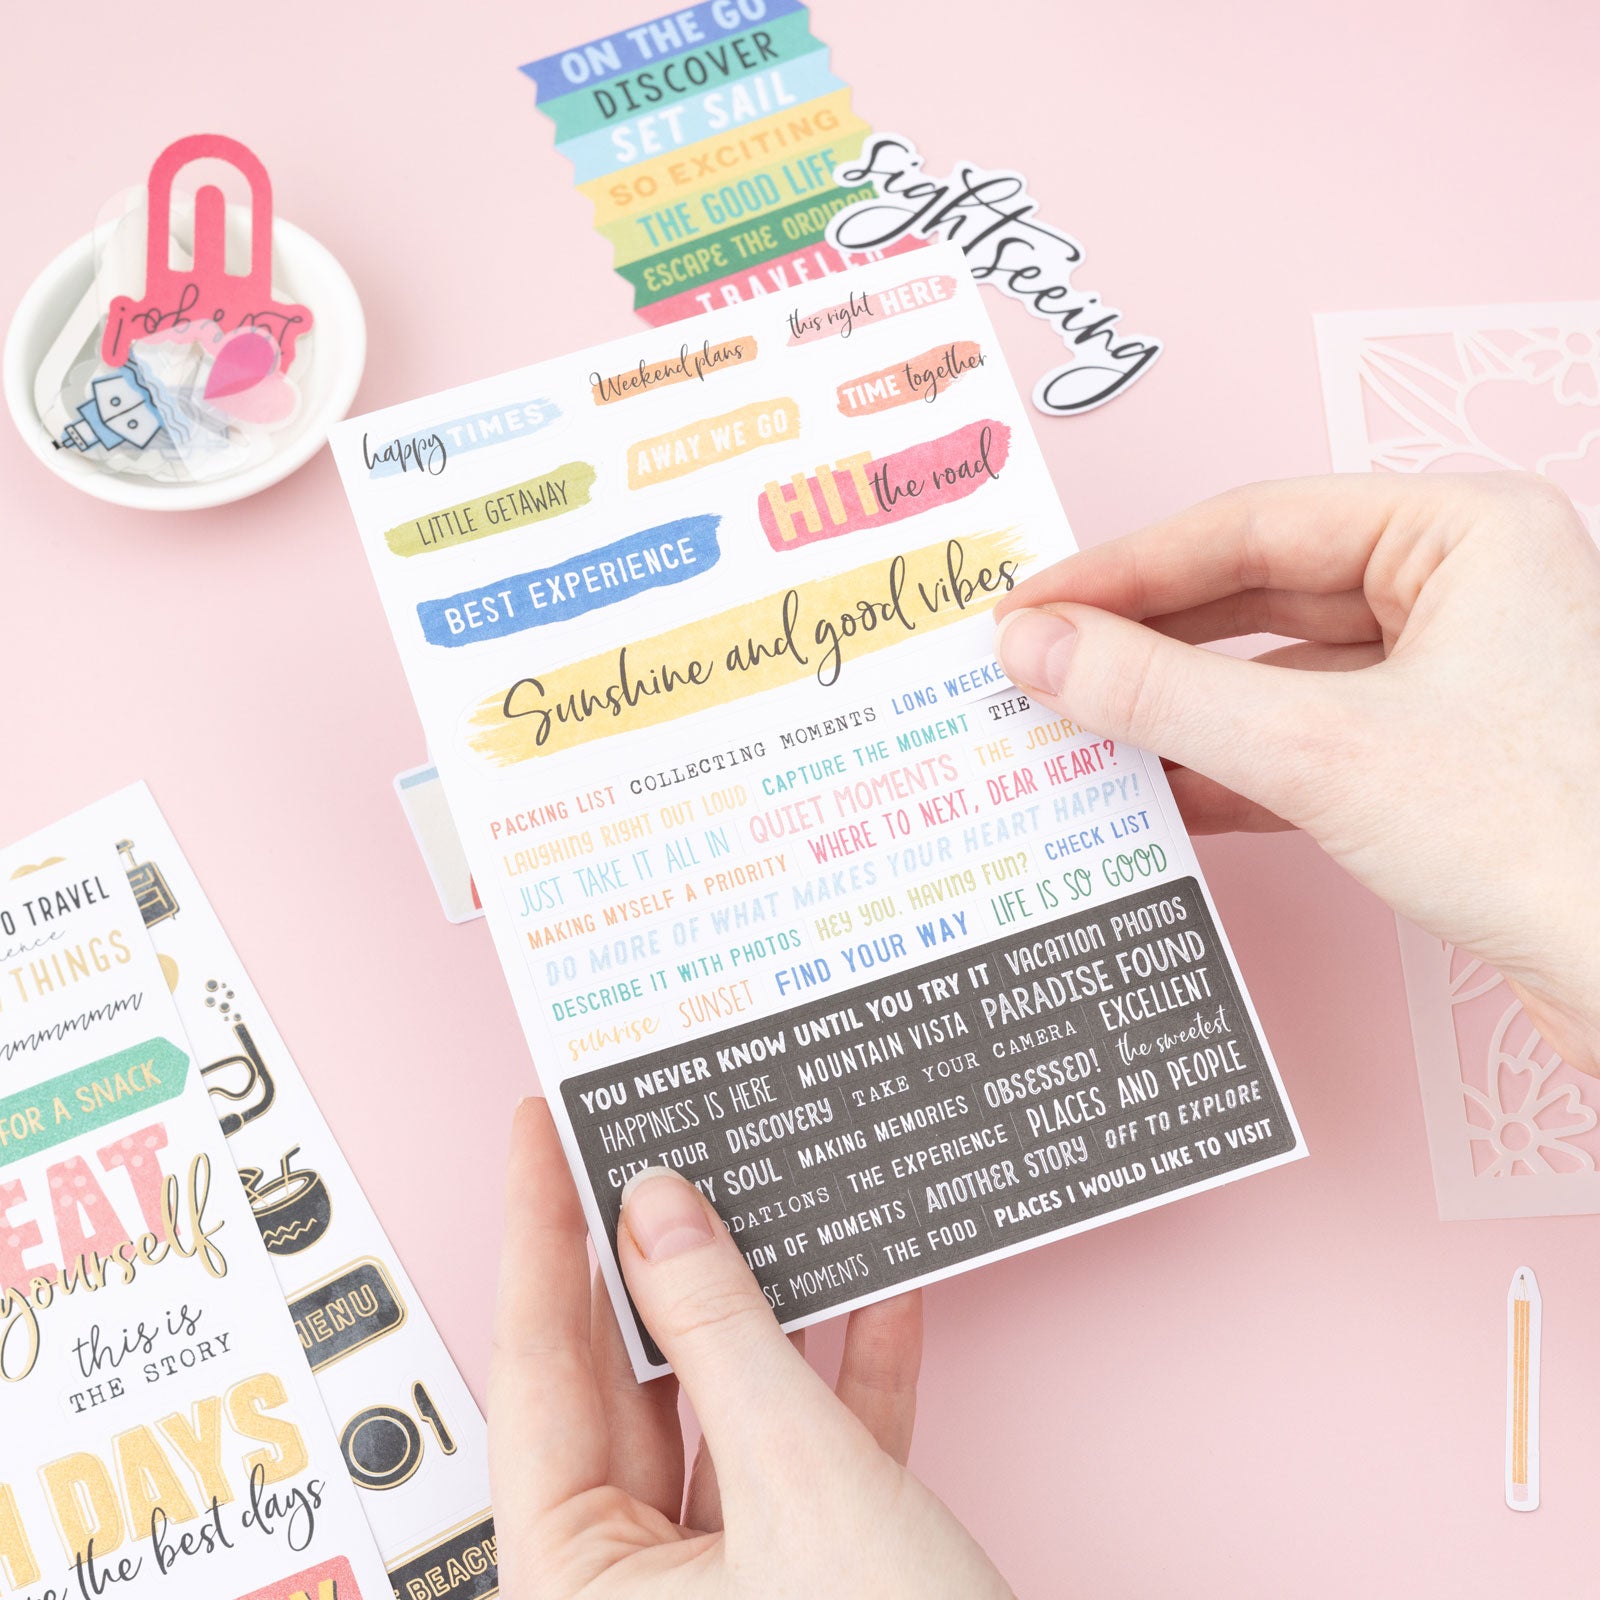 ON THE GO
DISCOVER
SET SAIL
SO EXCITING
THE GOOD LIFE
ESCAPE THE
TRAVELER
sightseeing
let's go!
this right HERE
Weekend plans
TIME together
happy TIMES
AWAY WE GO
HIT the road
LITTLE GETAWAY
BEST EXPERIENCE
Sunshine and good vibes
PACKING LIST
COLLECTING MOMENTS
LONG
LAUGHING RIGHT OUT LOUD
CAPTURE THE MOMENT
THE
JUST TAKE IT ALL IN
QUIET MOMENTS
THE
MAKING MYSELF A PRIORITY
WHERE TO NEXT, DEAR HEART?
DO MORE OF WHAT MAKES YOUR HEART HAPPY!
DESCRIBE IT WITH PHOTOS
HEY YOU, HAVING FUN?
CHECK LIST
sunrise
SUNSET
FIND YOUR WAY
LIFE IS SO GOOD
YOU NEVER KNOW UNTIL YOU TRY IT
VACATION PHOTOS
HAPPINESS IS HERE
MOUNTAIN VISTA
PARADISE FOUND
CITY TOUR
DISCOVERY
TAKE YOUR CAMERA
EXCELLENT
MY SOUL
MAKING MEMORIES
OBSESSED!
the sweetest
DATIONS
THE EXPERIENCE
PLACES AND PEOPLE
ION OF MOMENTS
ANOTHER STORY
OFF TO EXPLORE
SE MOMENTS
THE FOOD
PLACES I WOULD LIKE TO VISIT
O TRAVEL
ence
THINGS
mmmmmm
FOR A SNACK
EAT
yourself
this is
THE STORY
DAYS
the best days
MENU
BEACH